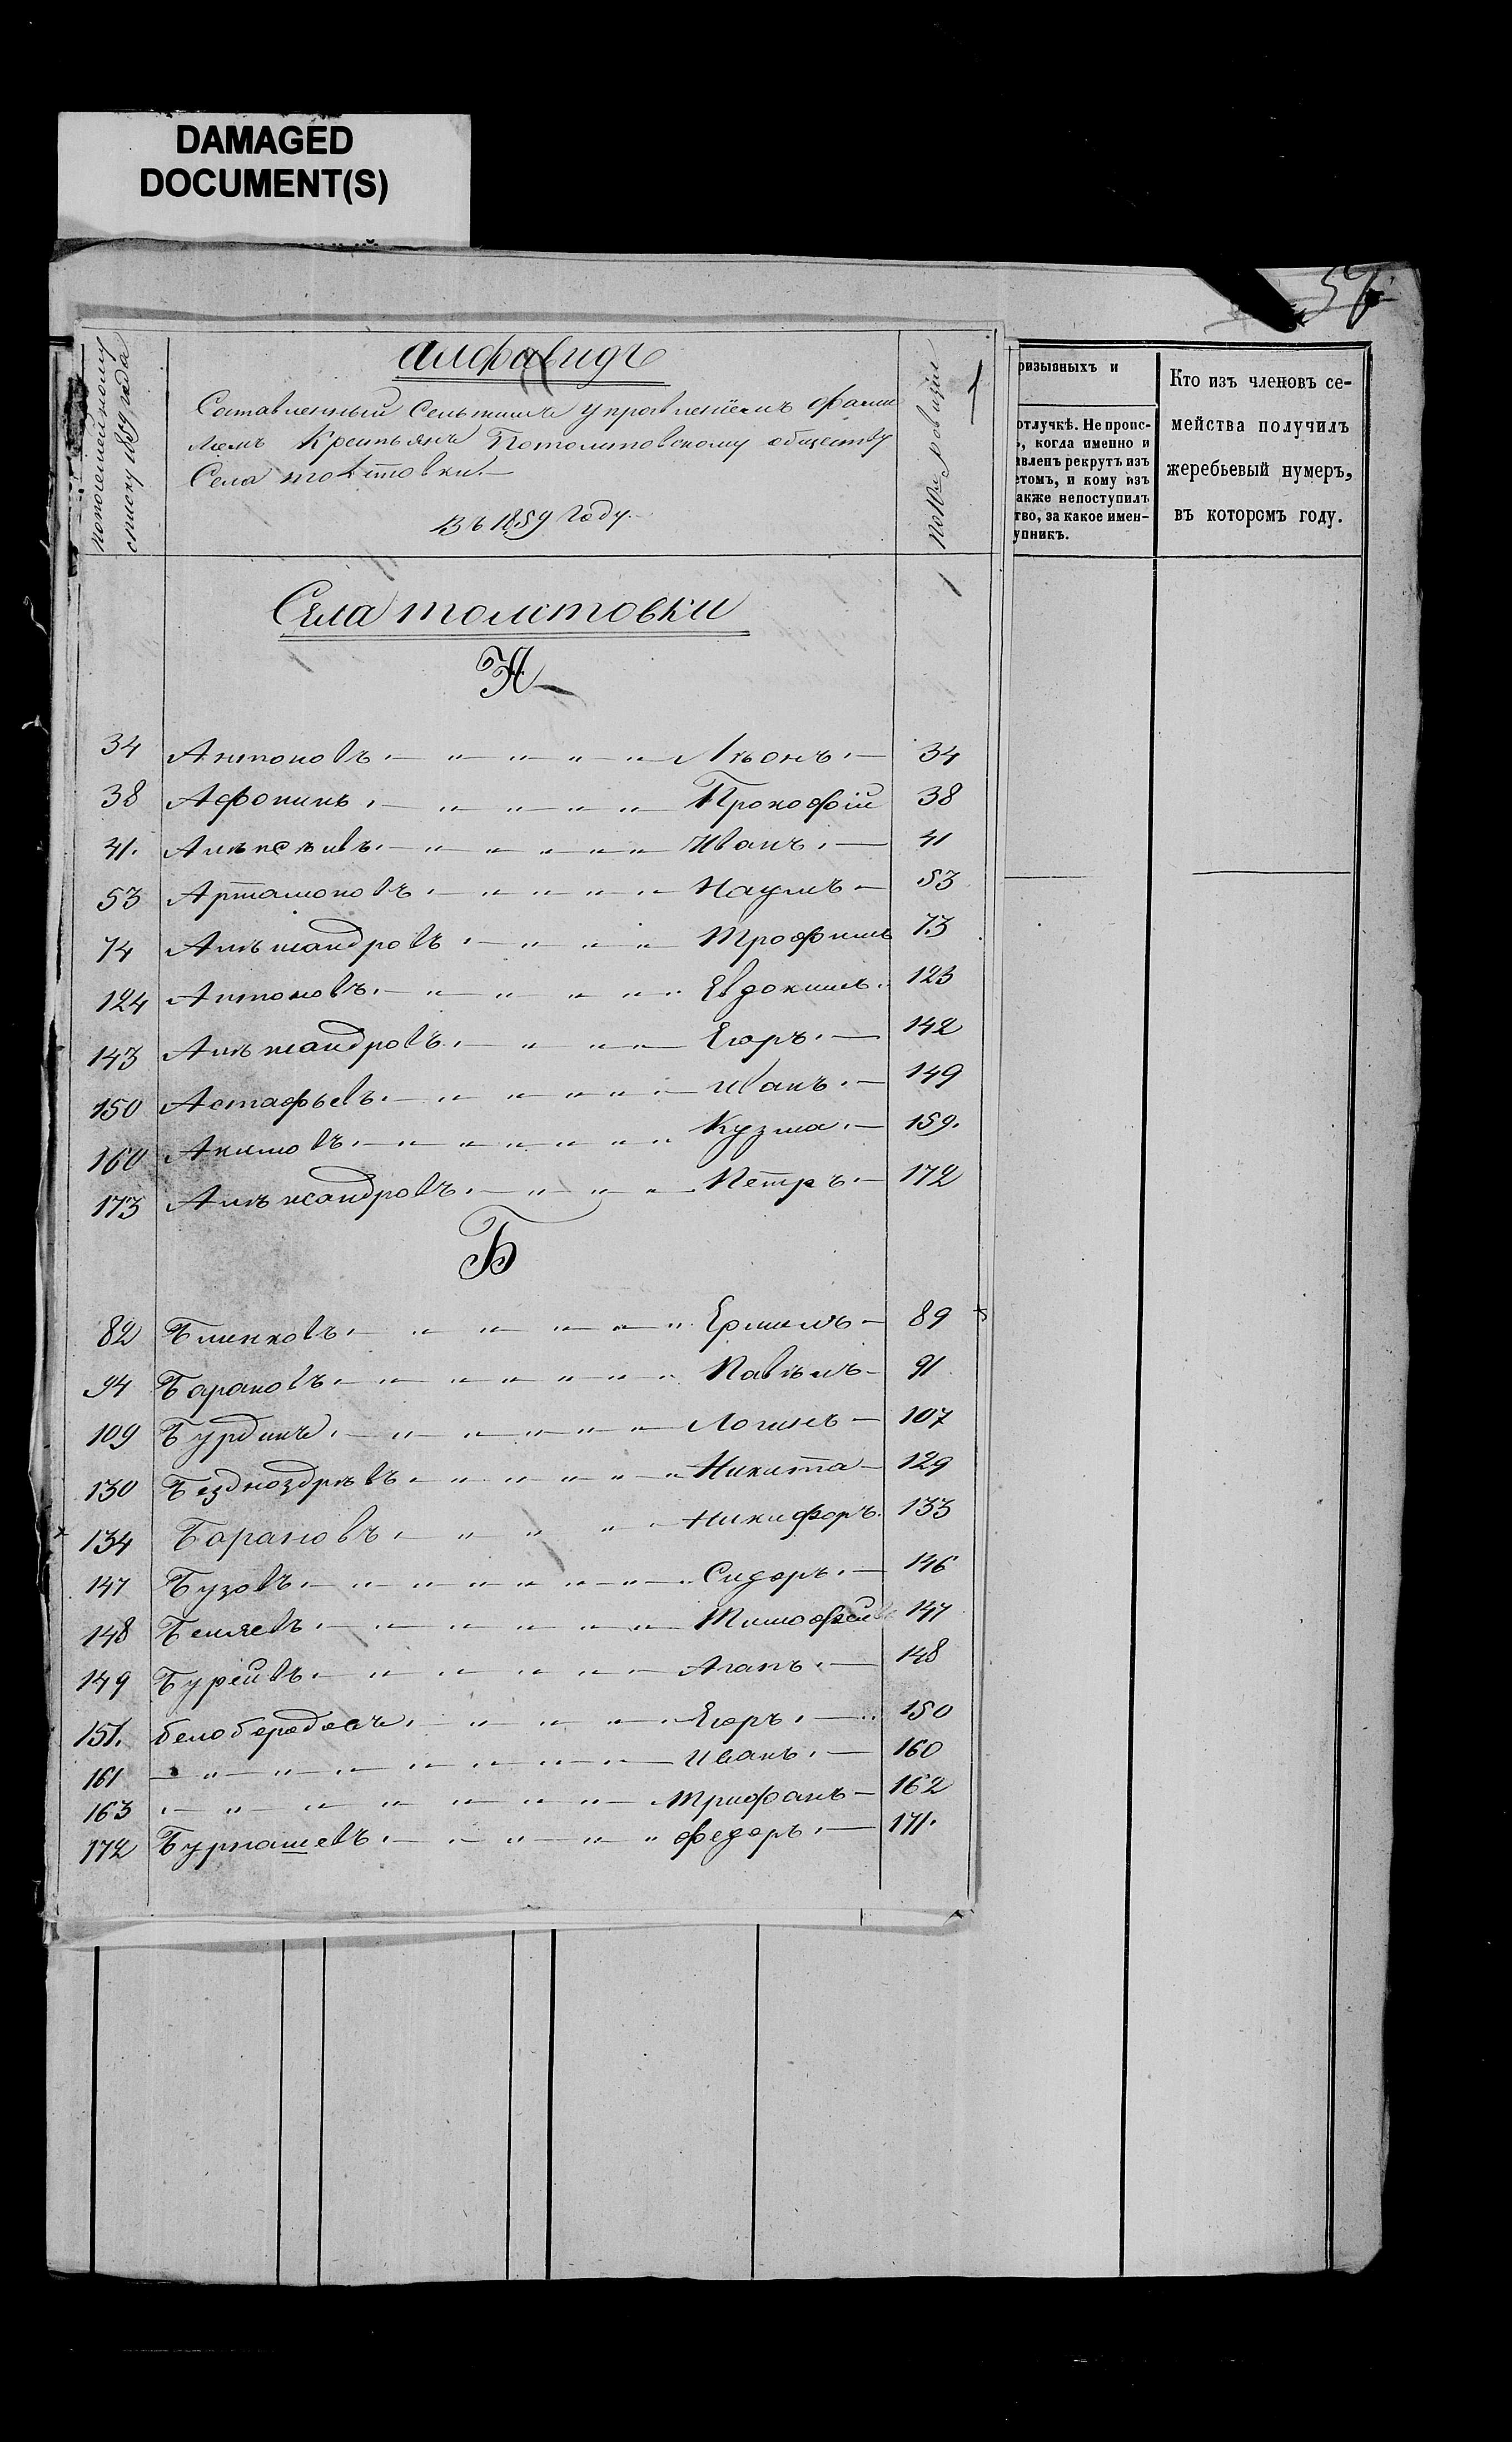 DAMAGED
DOCUMENT(S)
57
попосемейному
списку 1859 года
алфавидъ
Составленный Сельскимъ управленiемъ фами
лiемъ Крестьянъ Потолстовскому обществу
Села толстовки
Въ 1859 Году.
по № ревизiи
1
ризывныхъ и
отлучкѣ. Не пропс-
ь, когда именно и
авленъ рекрутъ изъ
етомъ, и кому изъ
акже непоступилъ
тво, за какое имен-
упникъ.
Кто изъ членовъ се-
мейства получилъ
жеребьевый нумеръ,
въ которомъ году.
Села толстовки
1
А
34 Антоновъ. — „ — „ — „ — „ — Лѣонъ. — 34
38 Афонинъ. — „ — „ — „ — „ Прокофiй 38
41. Алѣксѣивъ. — „ — „ — „ — „ — Иванъ. — 41
53 Артамоновъ. — „ — „ — „ — „ Наумъ — 53
74 Алѣксандровъ. — „ — „ — „ Трофимъ 73
124 Антоновъ. — „ — „ — „ — „ Евдокимъ. 123
143 Алѣксандровъ. — „ — „ — Егоръ. — 142
150 Астафьевъ. — „ — „ — „ — Иванъ. — 149
160 Акимовъ. — „ — „ — „ — „ Кузма. — 159.
173 Алѣксандровъ. — „ — „ — „ Петръ. — 172
Б
82 Блинковъ. — „ — „ — „ — „ Ермилъ — 89
94 Барановъ. — „ — „ — „ — „ Павѣлъ — 91
109 Бурдинъ. — „ — „ — „ — Логинъ — 107
130 Бездноздрѣвъ. — „ — „ — „ — Никита — 129
134 Барановъ. — „ — „ — „ Никифоръ. 133
147 Бузовъ. — „ — „ — „ — „ Сидоръ. — 146
148 Беляевъ. — „ — „ — „ — Тимофей 147
149 Бурейвъ. — „ — „ — „ — Агапъ. — 148
151. белобородовъ. — „ — „ — „ Егоръ. — 150
161 — „ — „ — „ — „ — Иванъ. — 160
163 . — „ — „ — „ — „ — Трифанъ — 162
172 Бурнашевъ. — „ — „ — „ федоръ. — 171.